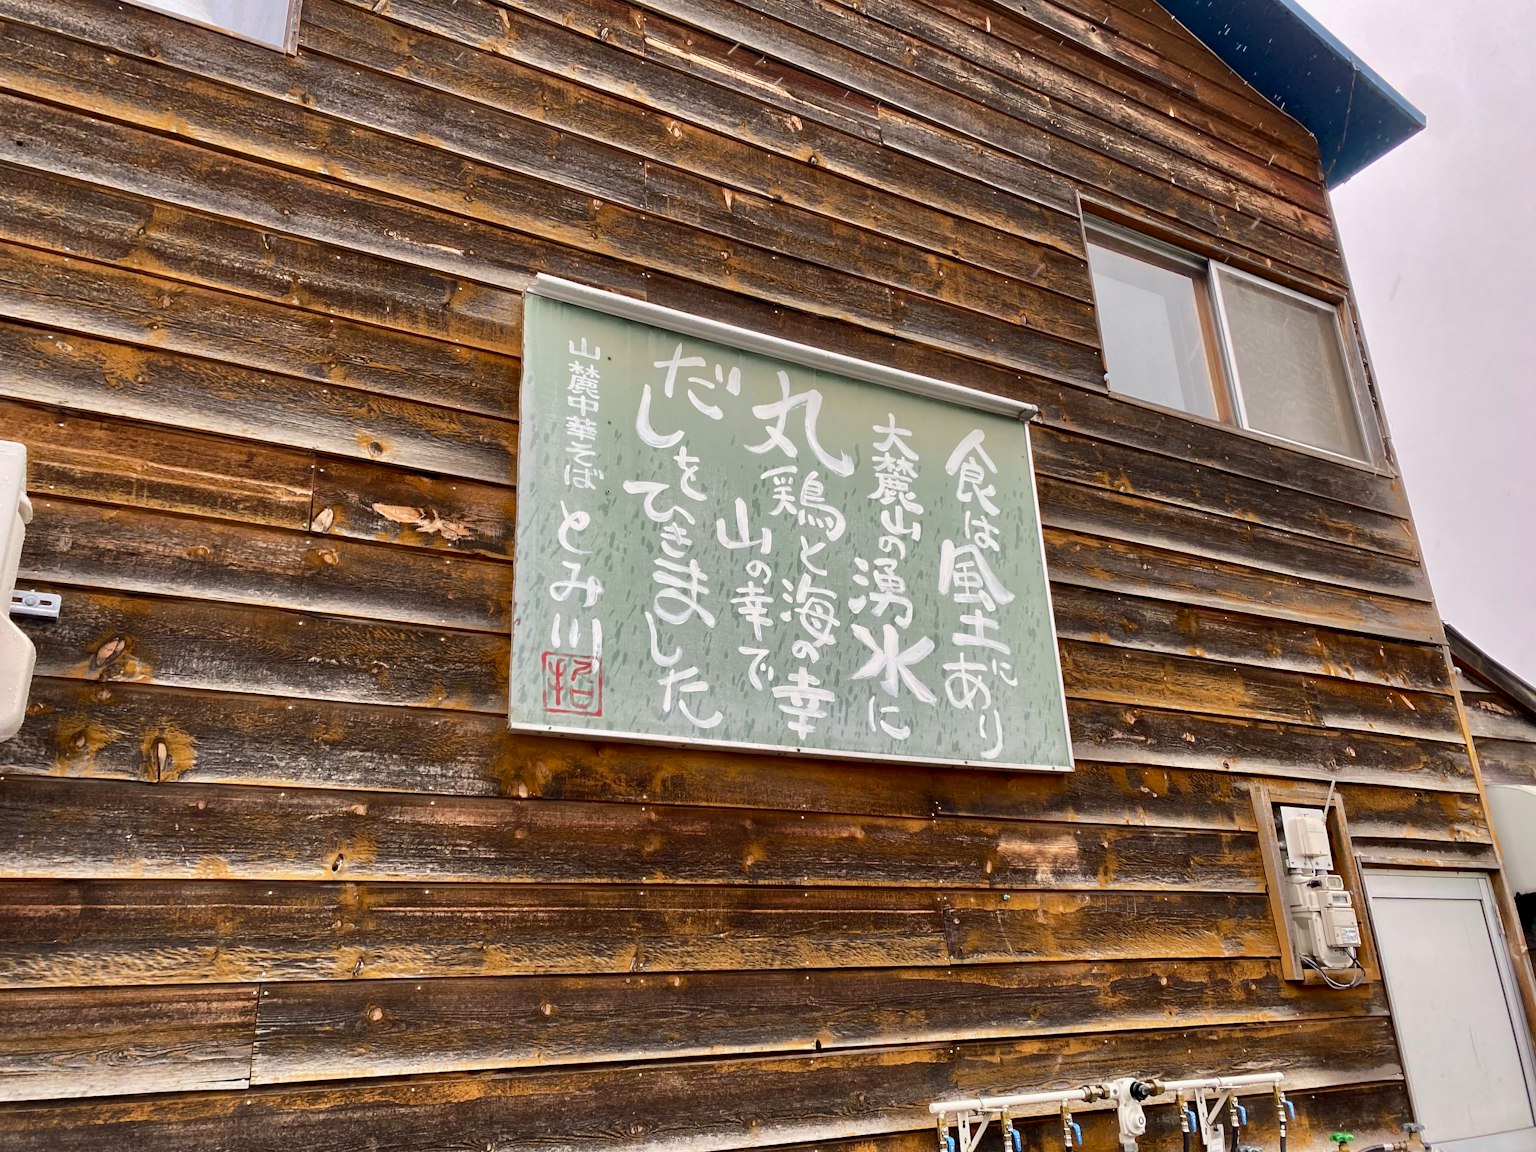 食は風土にあり
大麓山の湧水に
丸鶏と海の幸
山の幸で
だしをひきました
山麓中華そば とみ川